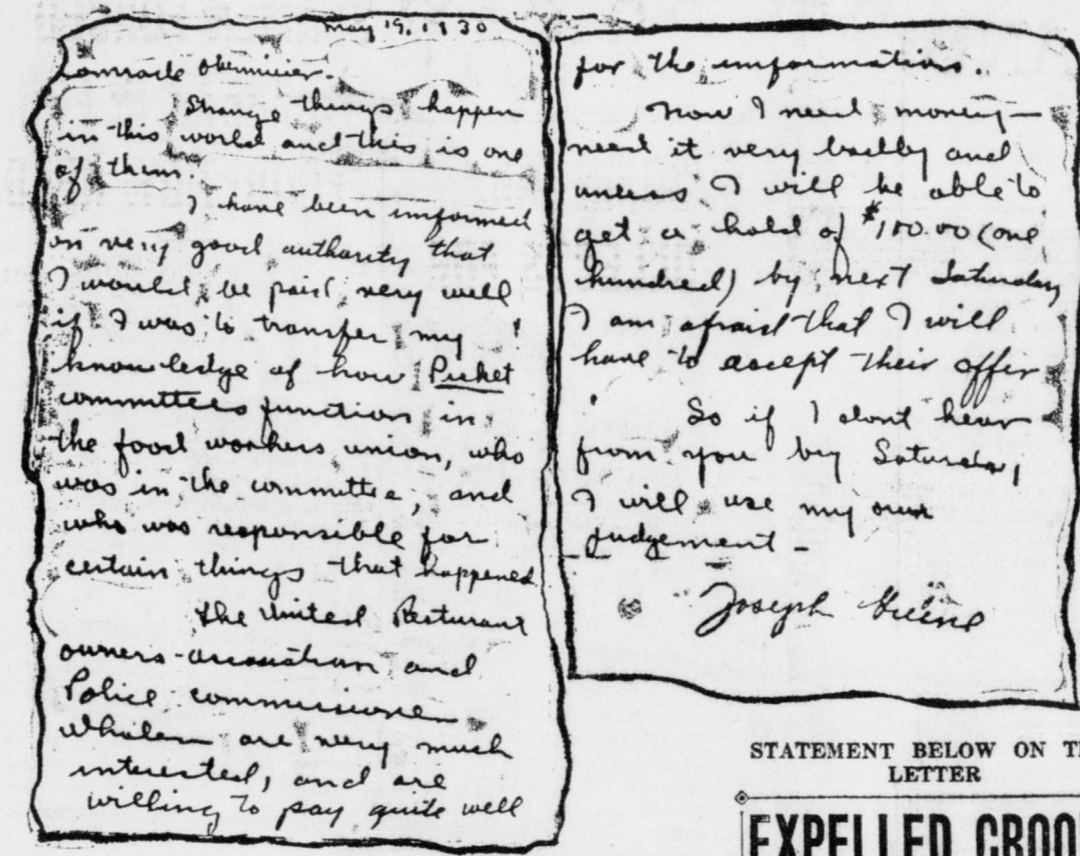 May 19, 1930
Comrade Obermeier.
Strange things happen
in this world and this is one
of them.
I have been informed
on very good authority that
I would be paid very well
if I was to transfer my
knowledge of how Picket
committees function in
the food workers union, who
was in the committee, and
who was responsible for
certain things that happened
The United Resturant
owners association and
Police commissioner
Whalen are very much
interested, and are
willing to pay quite well
for the information.
Now I need money—
need it very badly and
unless I will be able to
get a hold of $100.00 (one
hundred) by next Saturday
I am afraid that I will
have to accept their offer
So if I dont hear
from you by Saturday,
I will use my own
judgement -
Joseph Greene
STATEMENT BELOW ON
LETTER
EXPELLED